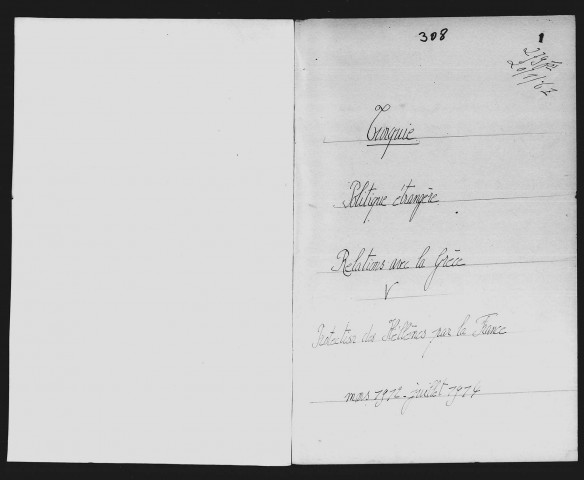 308 1
20/1/72
Turquie
Politique étrangère
Relations avec la Grèce
V
Protection des Hellènes par la France
mars 1912 - juillet 1914